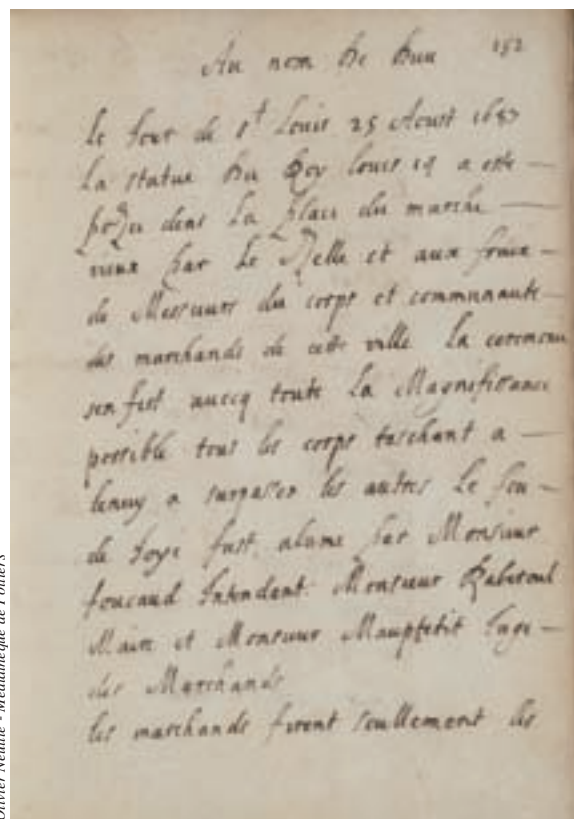 Au nom de Dieu 152
Le Jour de St Louis 25 Aoust 1687
La statue du Roy louis 14 a esté
pozée dans La place du marché
vieux par Le Zelle et aux fraix
de Messieurs du corps et communauté
des marchands de cette ville La ceremonie
sen fist avecq toute La Magnifissance
possible tous les corps taschant a
lenvy a surpasser les autres Le feu
de Joye fust alumé par Monsieur
foucaud Intendent Monsieur Rabereul
Maire et Monsieur Maupetit Juge
des Marchands
les marchands firent seullement les
Olivier Neuillé - Médiathèque de Poitiers